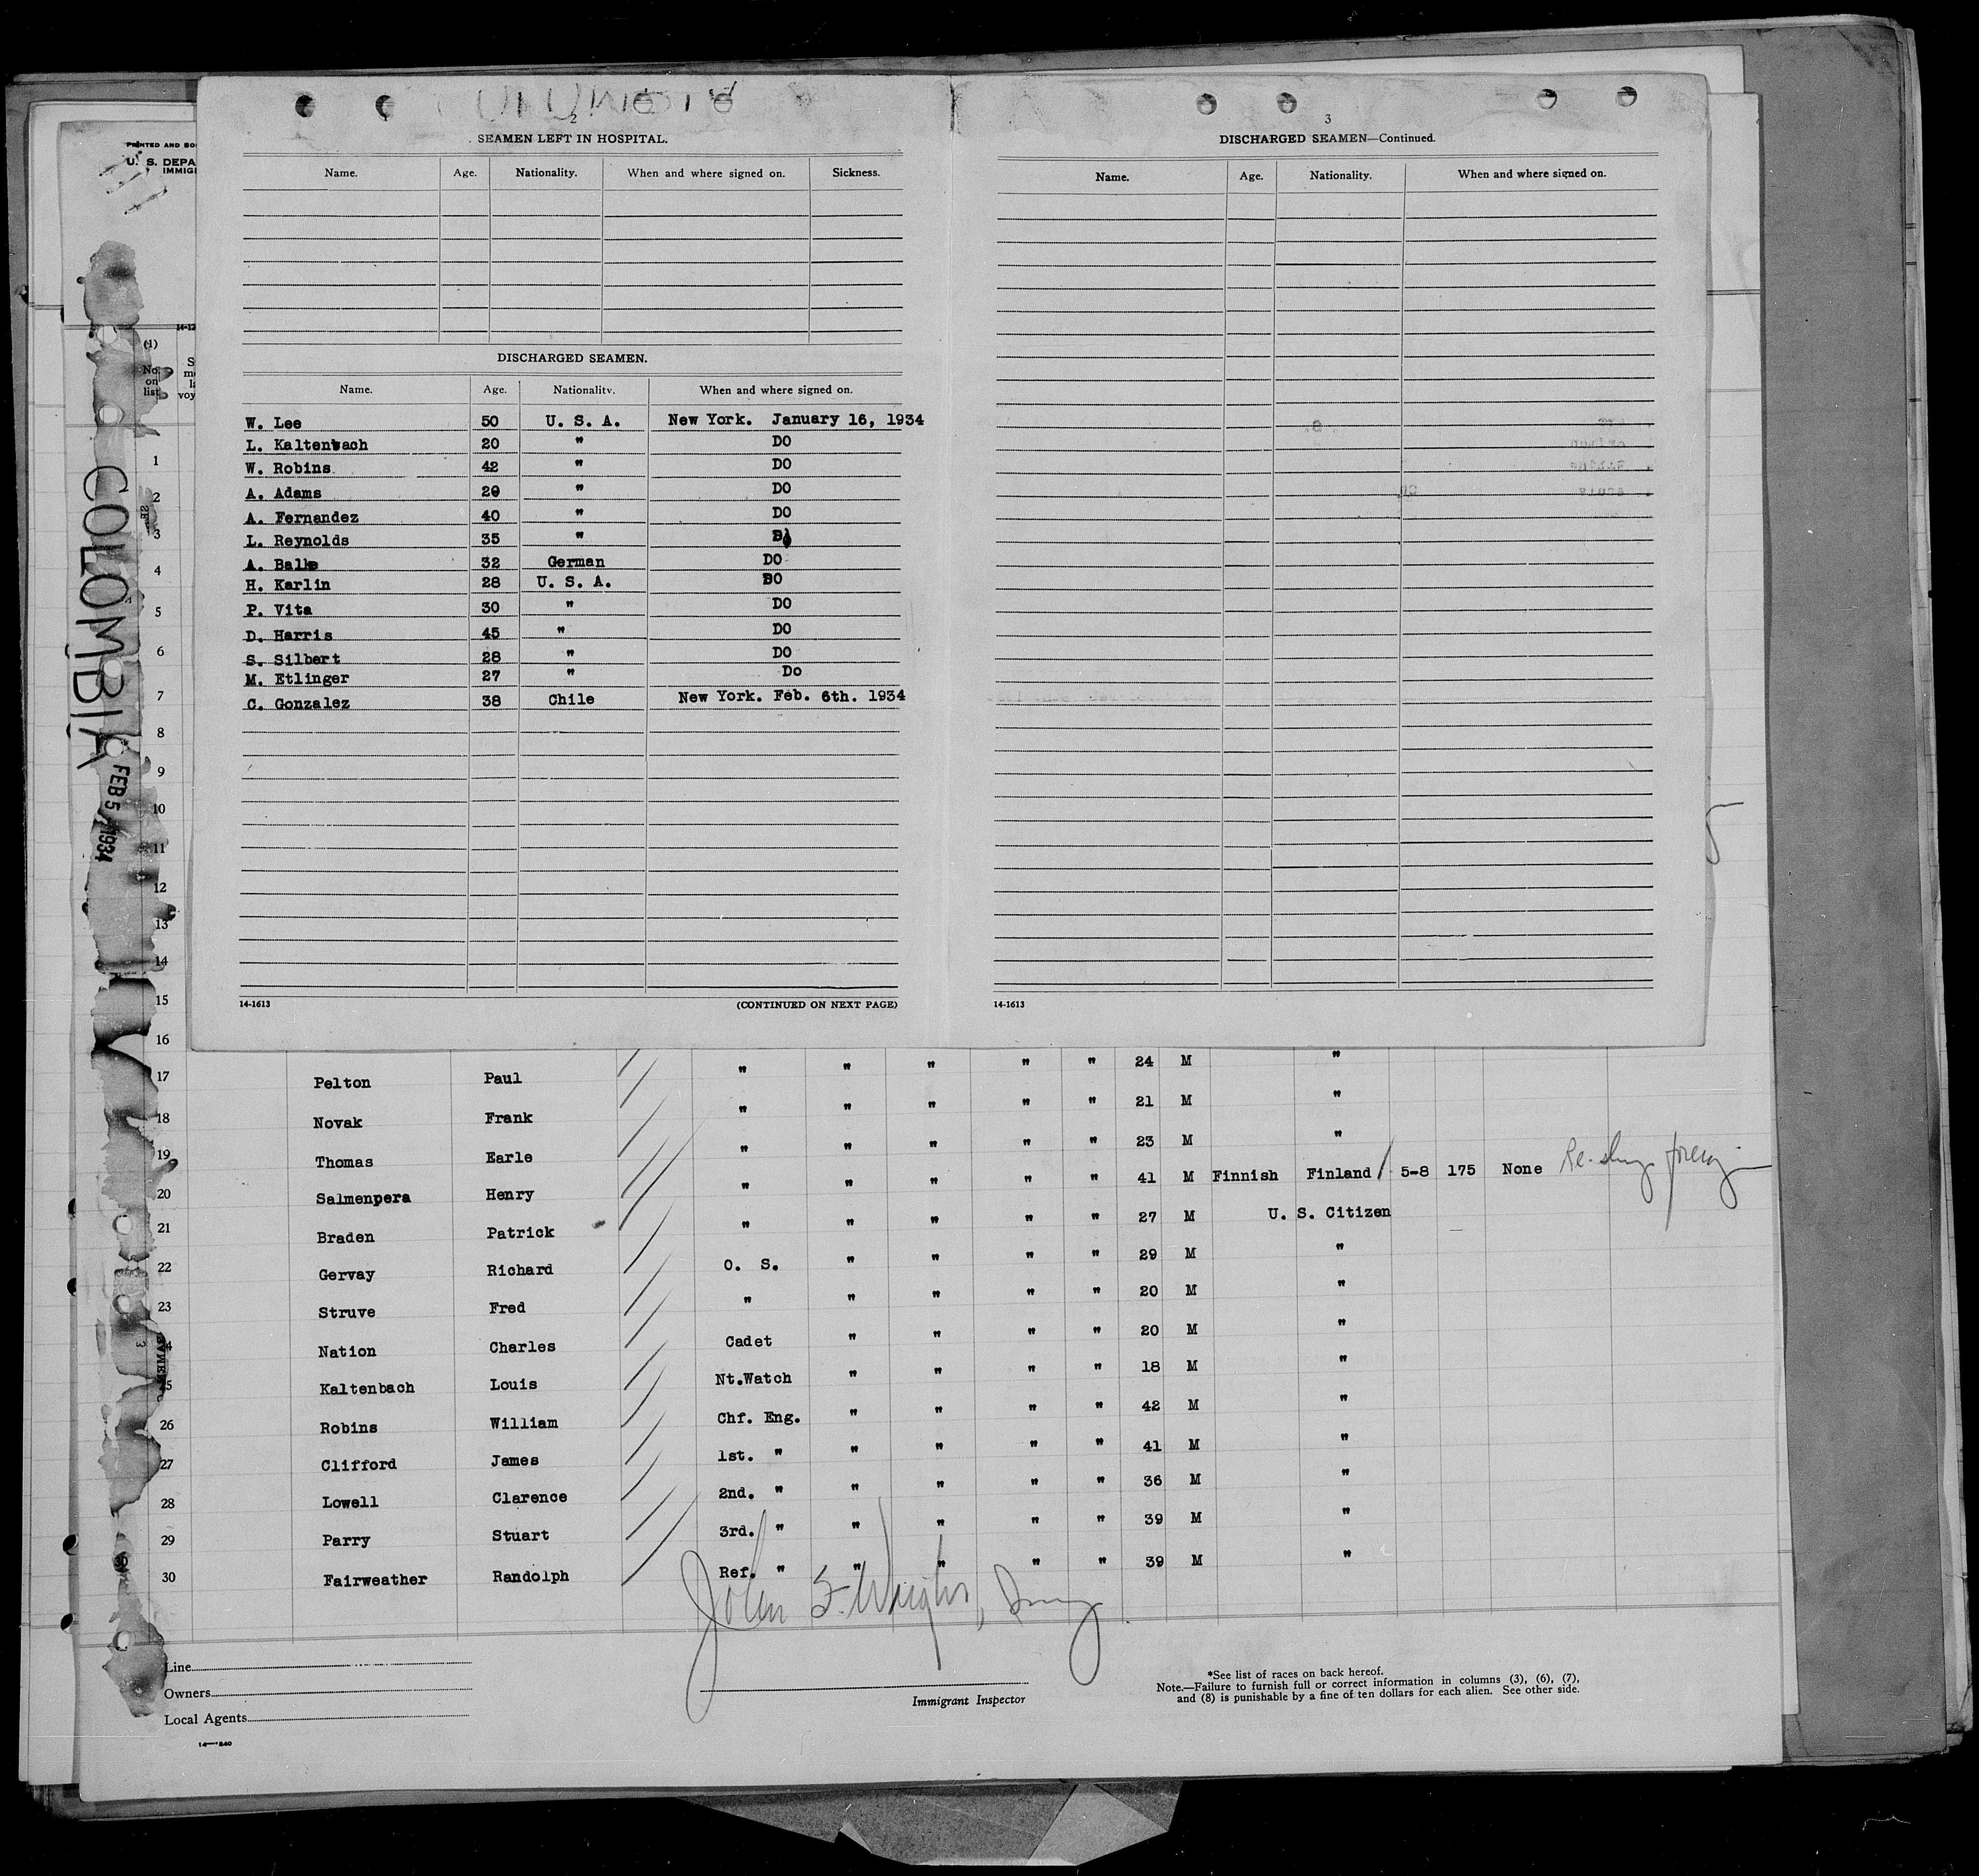 PRINTED AND SO
U. S. DEPA
IMMIGI
14-12
(1)
No.
on
list
S
voy
COLOMBIA
FEB 5 1934
2
SEAMEN LEFT IN HOSPITAL.
Name. Age. Nationality. When and where signed on. Sickness.
DISCHARGED SEAMEN.
Name. Age. Nationality. When and where signed on.
W. Lee 50 U. S. A. New York. January 16, 1934
L. Kaltenbach 20 " DO
W. Robins 42 " DO
A. Adams 20 " DO
A. Fernandez 40 " DO
L. Reynolds 35 "
A. Balke 32 German DO
H. Karlin 28 U. S. A. DO
P. Vita 30 " DO
D. Harris 45 " DO
S. Silbert 28 " DO
M. Etlinger 27 " Do
C. Gonzalez 38 Chile New York. Feb. 6th. 1934
14-1613 (CONTINUED ON NEXT PAGE)
3
DISCHARGED SEAMEN—Continued.
Name. Age. Nationality. When and where signed on.
14-1613
1
2
3
4
5
6
7
8
9
10
11
12
13
14
15
16
17 Pelton Paul " " " " " 24 M "
18 Novak Frank " " " " " 21 M "
19 Thomas Earle " " " " " 23 M "
20 Salmenpera Henry " " " " " 41 M Finnish Finland 5-8 175 None
21 Braden Patrick " " " " " 27 M U. S. Citizen
22 Gervay Richard O. S. " " " " 29 M "
23 Struve Fred " " " " " 20 M "
24 Nation Charles Cadet " " " " 20 M "
25 Kaltenbach Louis Nt.Watch " " " " 18 M "
26 Robins William Chf. Eng. " " " " 42 M "
27 Clifford James 1st. " " " " " 41 M "
28 Lowell Clarence 2nd. " " " " " 36 M "
29 Parry Stuart 3rd. " " " " " 39 M "
30 Fairweather Randolph Ref. " " " " " 39 M "
John
Line
Owners
Local Agents
14—1240
Immigrant Inspector
*See list of races on back hereof.
Note.—Failure to furnish full or correct information in columns (3), (6), (7),
and (8) is punishable by a fine of ten dollars for each alien. See other side.